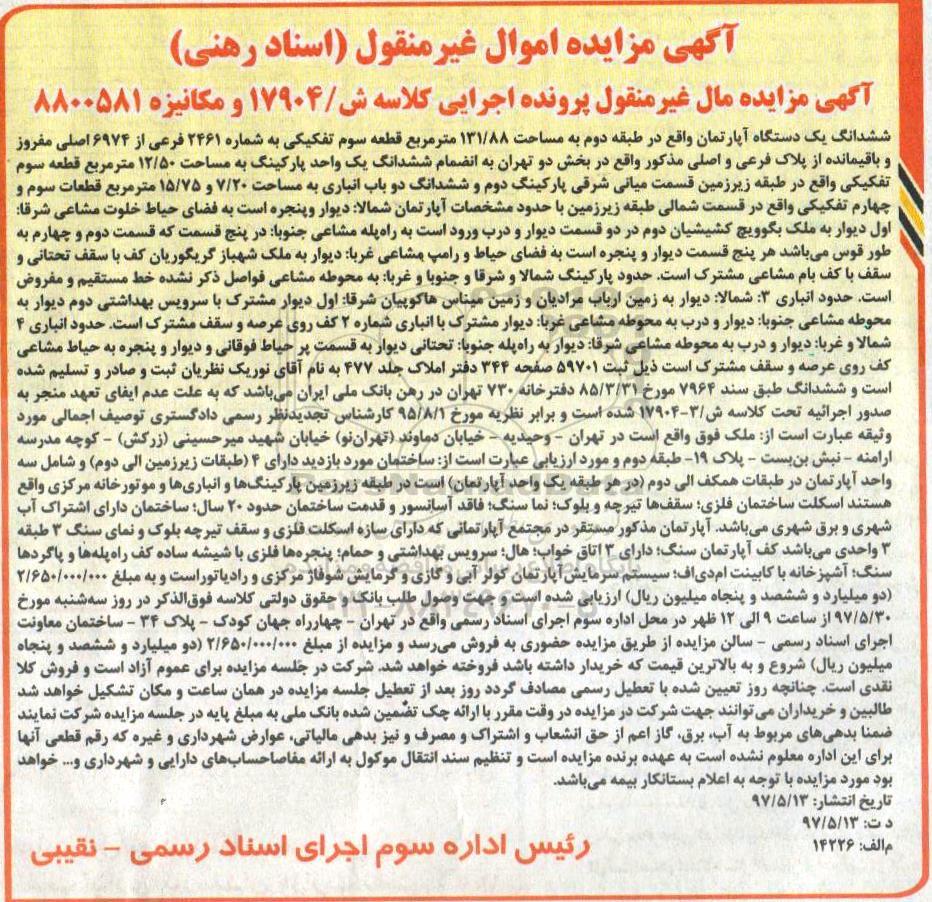 آگهی مزایده اموال غیرمنقول (اسناد رهنی)
آگهی مزایده مال غیرمنقول پرونده اجرایی کلاسه ش/۱۷۹۰۴ و مکانیزه ۸۸۰۰۵۸۱
ششدانگ یک دستگاه آپارتمان واقع در طبقه دوم به مساحت ۱۳۱/۸۸ مترمربع قطعه سوم تفکیکی به شماره ۲۴۶۱ فرعی از ۶۹۷۴ اصلی مفروز
و باقیمانده از پلاک فرعی و اصلی مذکور واقع در بخش دو تهران به انضمام ششدانگ یک واحد پارکینگ به مساحت ۱۲/۵۰ مترمربع قطعه سوم
تفکیکی واقع در طبقه زیرزمین قسمت میانی شرقی پارکینگ دوم و ششدانگ دو باب انباری به مساحت ۷/۲۰ و ۱۵/۷۵ مترمربع قطعات سوم و
چهارم تفکیکی واقع در قسمت شمالی طبقه زیرزمین با حدود مشخصات آپارتمان شمالا: دیوار وپنجره است به فضای حیاط خلوت مشاعی شرقا:
اول دیوار به ملک بگوویچ کشیشیان دوم در دو قسمت دیوار و درب ورود است به راه‌پله مشاعی جنوبا: در پنج قسمت که قسمت دوم و چهارم به
طور قوس می‌باشد هر پنج قسمت دیوار و پنجره است به فضای حیاط و رامپ مشاعی غربا: دیوار به ملک شهباز گریگوریان کف با سقف تحتانی و
سقف با کف بام مشاعی مشترک است. حدود پارکینگ شمالا و شرقا و جنوبا و غربا: به محوطه مشاعی فواصل ذکر نشده خط مستقیم و مفروض
است. حدود انباری ۳: شمالا: دیوار به زمین ارباب مرادیان و زمین میناس هاکوپیان شرقا: اول دیوار مشترک با سرویس بهداشتی دوم دیوار به
محوطه مشاعی جنوبا: دیوار و درب به محوطه مشاعی غربا: دیوار مشترک با انباری شماره ۲ کف روی عرصه و سقف مشترک است. حدود انباری ۴
شمالا و غربا: دیوار و درب به محوطه مشاعی شرقا: دیوار به راه‌پله جنوبا: تحتانی دیوار به قسمت پر حیاط فوقانی و دیوار و پنجره به حیاط مشاعی
کف روی عرصه و سقف مشترک است ذیل ثبت ۵۹۷۰۱ صفحه ۳۴۴ دفتر املاک جلد ۴۷۷ به نام آقای نوریک نظریان ثبت و صادر و تسلیم شده
است و ششدانگ طبق سند ۷۹۶۴ مورخ ۸۵/۳/۳۱ دفترخانه ۷۳۰ تهران در رهن بانک ملی ایران می‌باشد که به علت عدم ایفای تعهد منجر به
صدور اجرائیه تحت کلاسه ش/۳-۱۷۹۰۴ شده است و برابر نظریه مورخ ۹۵/۸/۱ کارشناس تجدیدنظر رسمی دادگستری توصیف اجمالی مورد
وثیقه عبارت است از: ملک فوق واقع است در تهران - وحیدیه - خیابان دماوند (تهران‌نو) خیابان شهید میرحسینی (زرکش) - کوچه مدرسه
ارامنه - نبش بن‌بست - پلاک ۱۹- طبقه دوم و مورد ارزیابی عبارت است از: ساختمان مورد بازدید دارای ۴ (طبقات زیرزمین الی دوم) و شامل سه
واحد آپارتمان در طبقات همکف الی دوم (در هر طبقه یک واحد آپارتمان) است در طبقه زیرزمین پارکینگ‌ها و انباری‌ها و موتورخانه مرکزی واقع
هستند اسکلت ساختمان فلزی؛ سقف‌ها تیرچه و بلوک؛ نما سنگ؛ فاقد آسانسور و قدمت ساختمان حدود ۲۰ سال؛ ساختمان دارای اشتراک آب
شهری و برق شهری می‌باشد. آپارتمان مذکور مستقر در مجتمع آپارتمانی که دارای سازه اسکلت فلزی و سقف تیرچه بلوک و نمای سنگ ۳ طبقه
۳ واحدی می‌باشد کف آپارتمان سنگ؛ دارای ۳ اتاق خواب؛ هال؛ سرویس بهداشتی و حمام؛ پنجره‌ها فلزی با شیشه ساده کف راه‌پله‌ها و پاگردها
سنگ؛ آشپزخانه با کابینت ام‌دی‌اف؛ سیستم سرمایش آپارتمان کولر آبی و گازی و گرمایش شوفاژ مرکزی و رادیاتوراست و به مبلغ ۲/۶۵۰/۰۰۰/۰۰۰
(دو میلیارد و ششصد و پنجاه میلیون ریال) ارزیابی شده است و جهت وصول طلب بانک و حقوق دولتی کلاسه فوق‌الذکر در روز سه‌شنبه مورخ
۹۷/۵/۳۰ از ساعت ۹ الی ۱۲ ظهر در محل اداره سوم اجرای اسناد رسمی واقع در تهران - چهارراه جهان کودک - پلاک ۳۴ - ساختمان معاونت
اجرای اسناد رسمی - سالن مزایده از طریق مزایده حضوری به فروش می‌رسد و مزایده از مبلغ ۲/۶۵۰/۰۰۰/۰۰۰ (دو میلیارد و ششصد و پنجاه
میلیون ریال) شروع و به بالاترین قیمت که خریدار داشته باشد فروخته خواهد شد. شرکت در جلسه مزایده برای عموم آزاد است و فروش کلا
نقدی است. چنانچه روز تعیین شده با تعطیل رسمی مصادف گردد روز بعد از تعطیل جلسه مزایده در همان ساعت و مکان تشکیل خواهد شد
طالبین و خریداران می‌توانند جهت شرکت در مزایده در وقت مقرر با ارائه چک تضمین شده بانک ملی به مبلغ پایه در جلسه مزایده شرکت نمایند
ضمنا بدهی‌های مربوط به آب، برق، گاز اعم از حق انشعاب و اشتراک و مصرف و نیز بدهی مالیاتی، عوارض شهرداری و غیره که رقم قطعی آنها
برای این اداره معلوم نشده است به عهده برنده مزایده است و تنظیم سند انتقال موکول به ارائه مفاصاحساب‌های دارایی و شهرداری و... خواهد
بود مورد مزایده با توجه به اعلام بستانکار بیمه می‌باشد.
تاریخ انتشار: ۹۷/۵/۱۳
د ت: ۹۷/۵/۱۳
م‌الف: ۱۴۲۲۶
رئیس اداره سوم اجرای اسناد رسمی - نقیبی